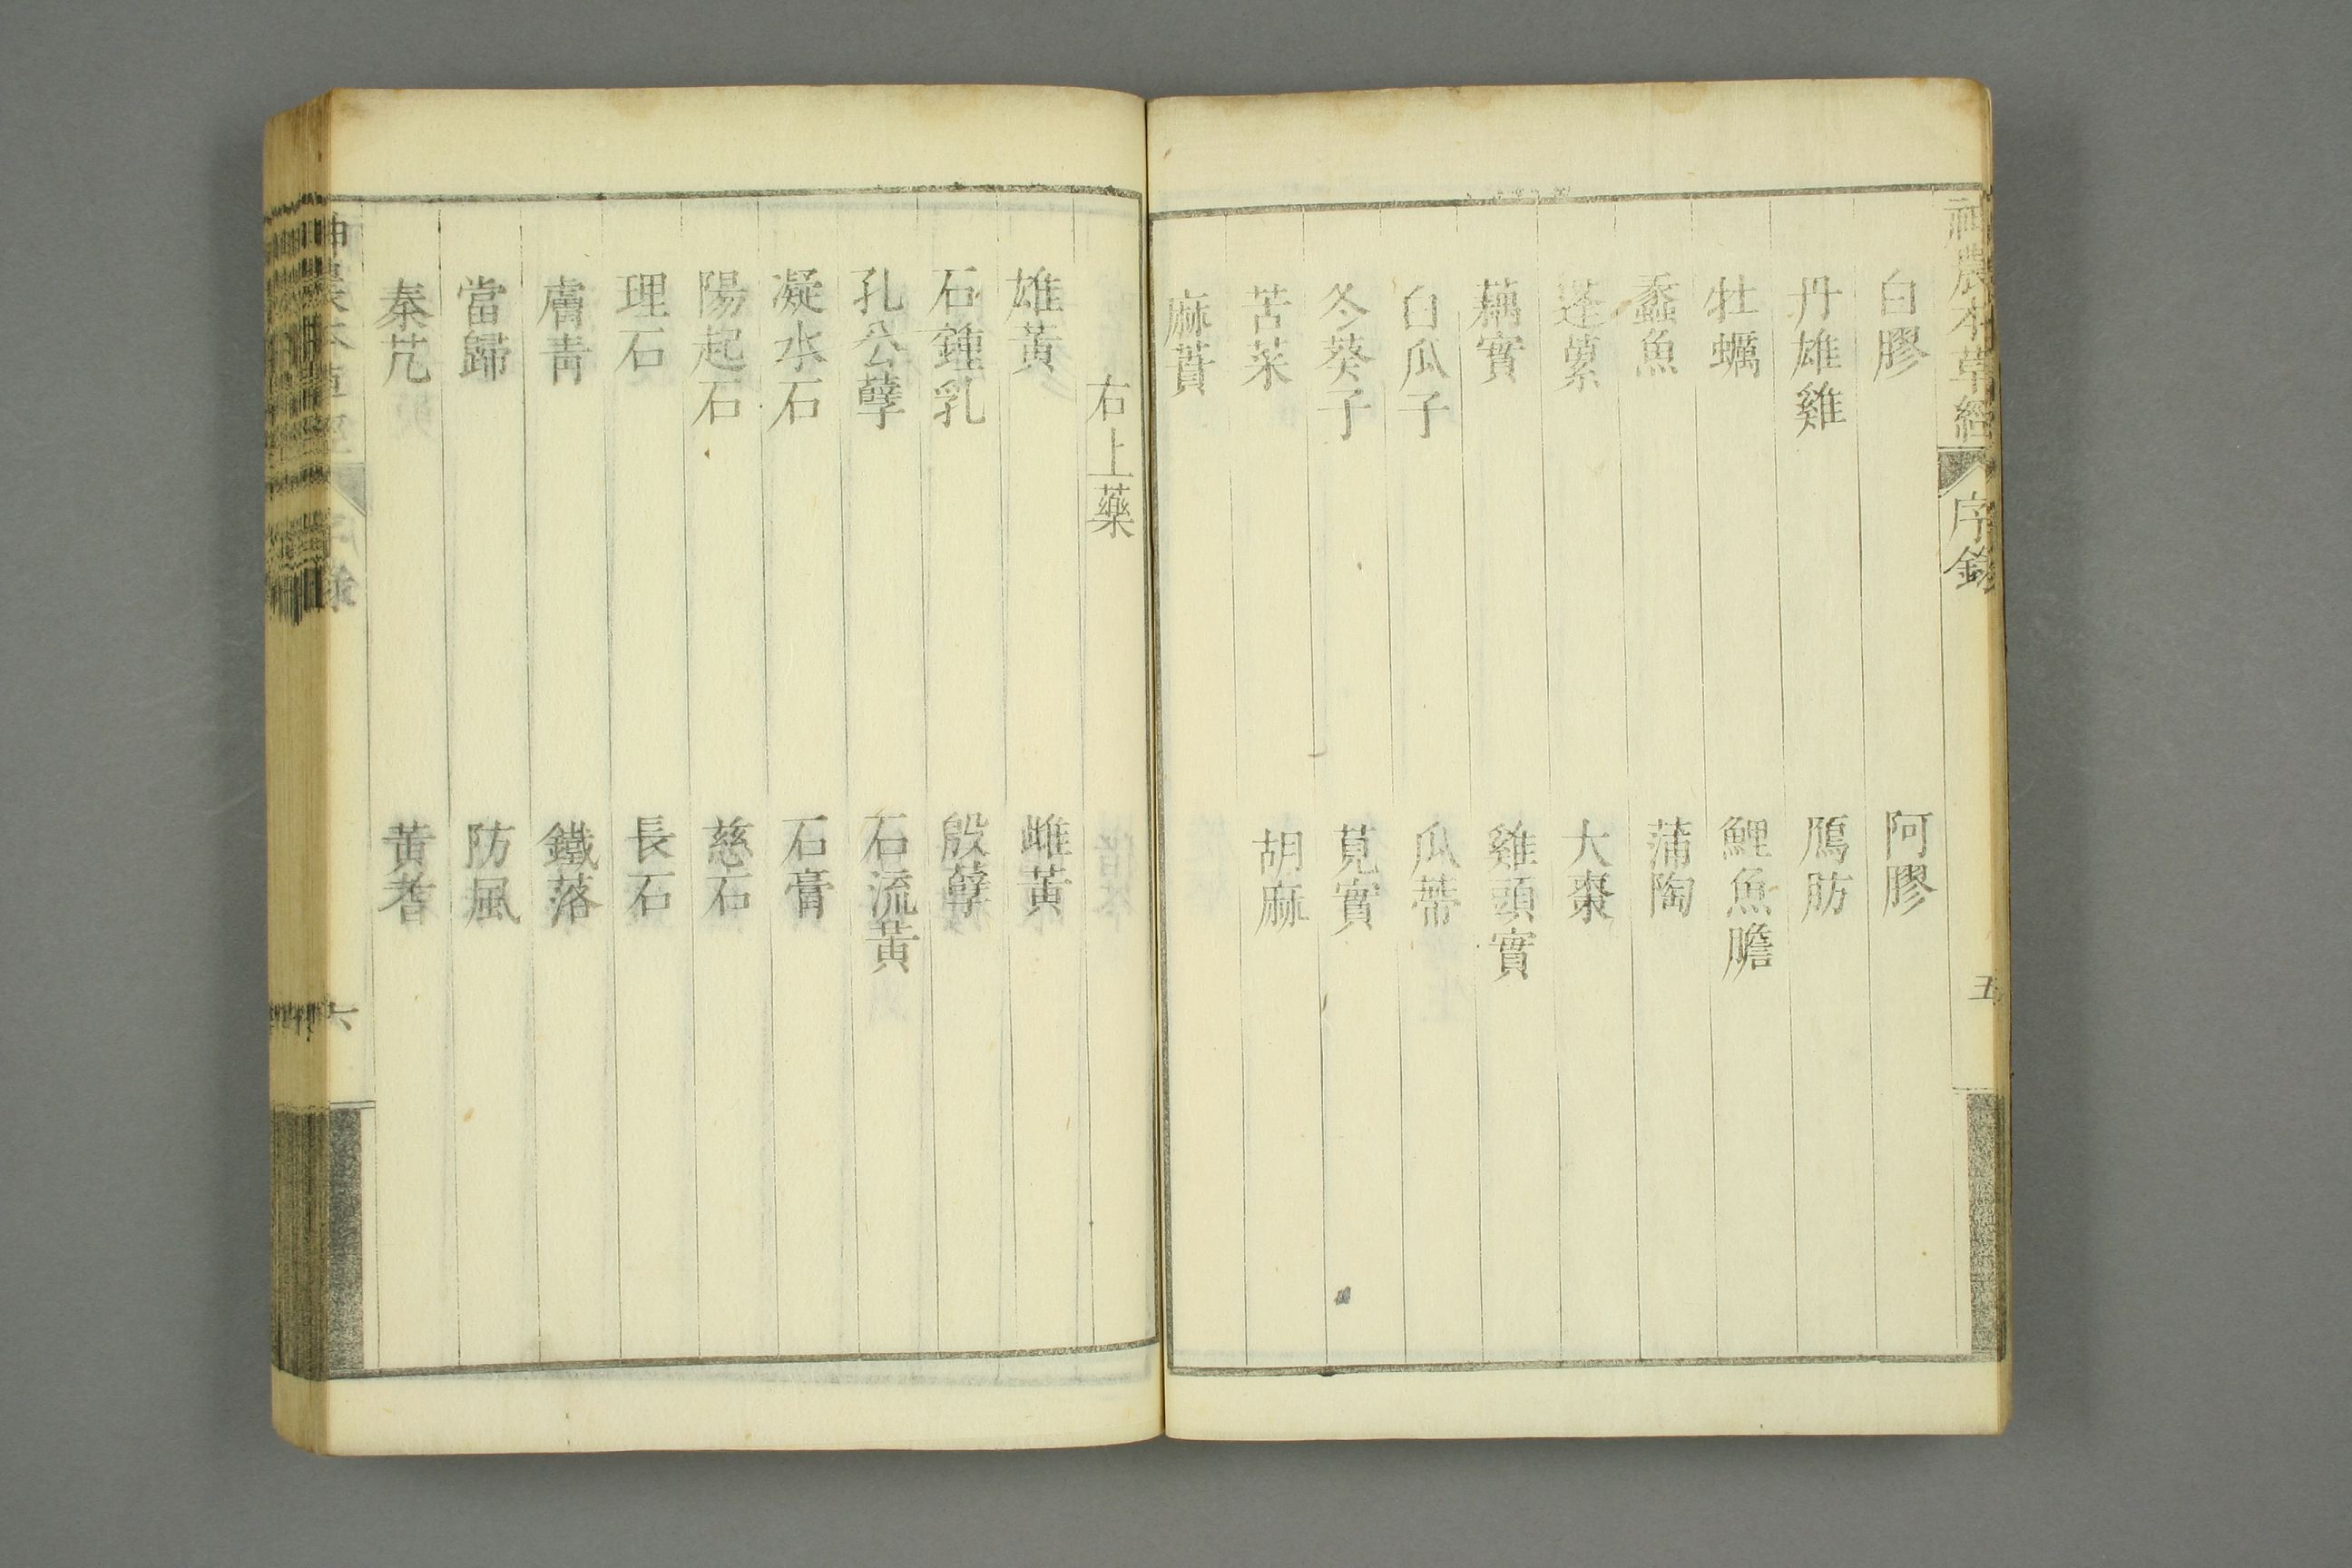 神農本草經 序錄 五
白膠 阿膠
丹雄雞 鴈肪
牡蠣 鯉魚膽
蠡魚 蒲陶
蓬蘽 大棗
藕實 雞頭實
白瓜子 瓜蒂
冬葵子 莧實
苦菜 胡麻
麻蕡
右上藥
雄黃 雌黃
石鍾乳 殷孽
孔公孽 石流黃
凝水石 石膏
陽起石 慈石
理石 長石
膚青 鐵落
當歸 防風
秦艽 黃耆
神農本草經 序錄 六